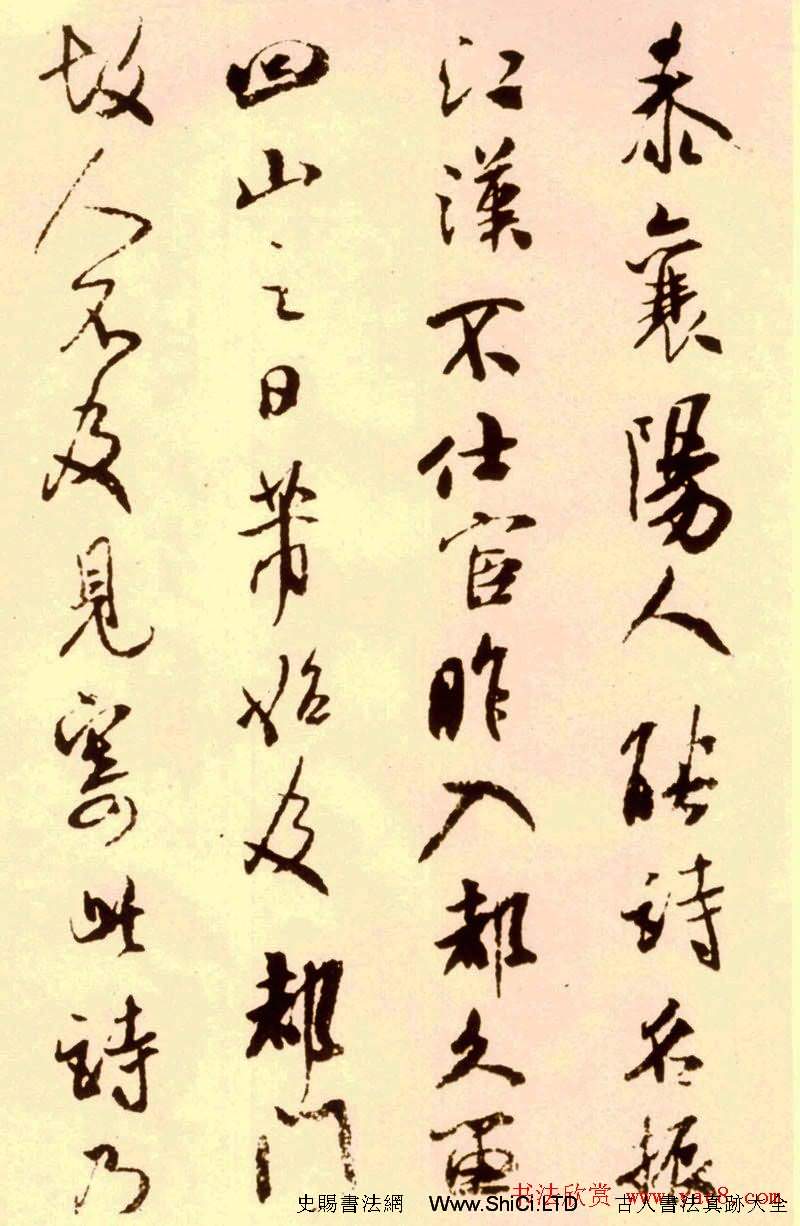 泰襄陽人能詩名振
江漢不仕宦昨入都久留
回山之日芾始及都門
故人不及見寄此詩乃
史賜書法網 Www.ShiCi.LTD 古人書法真跡大全
书法欣赏 www.yac8.com